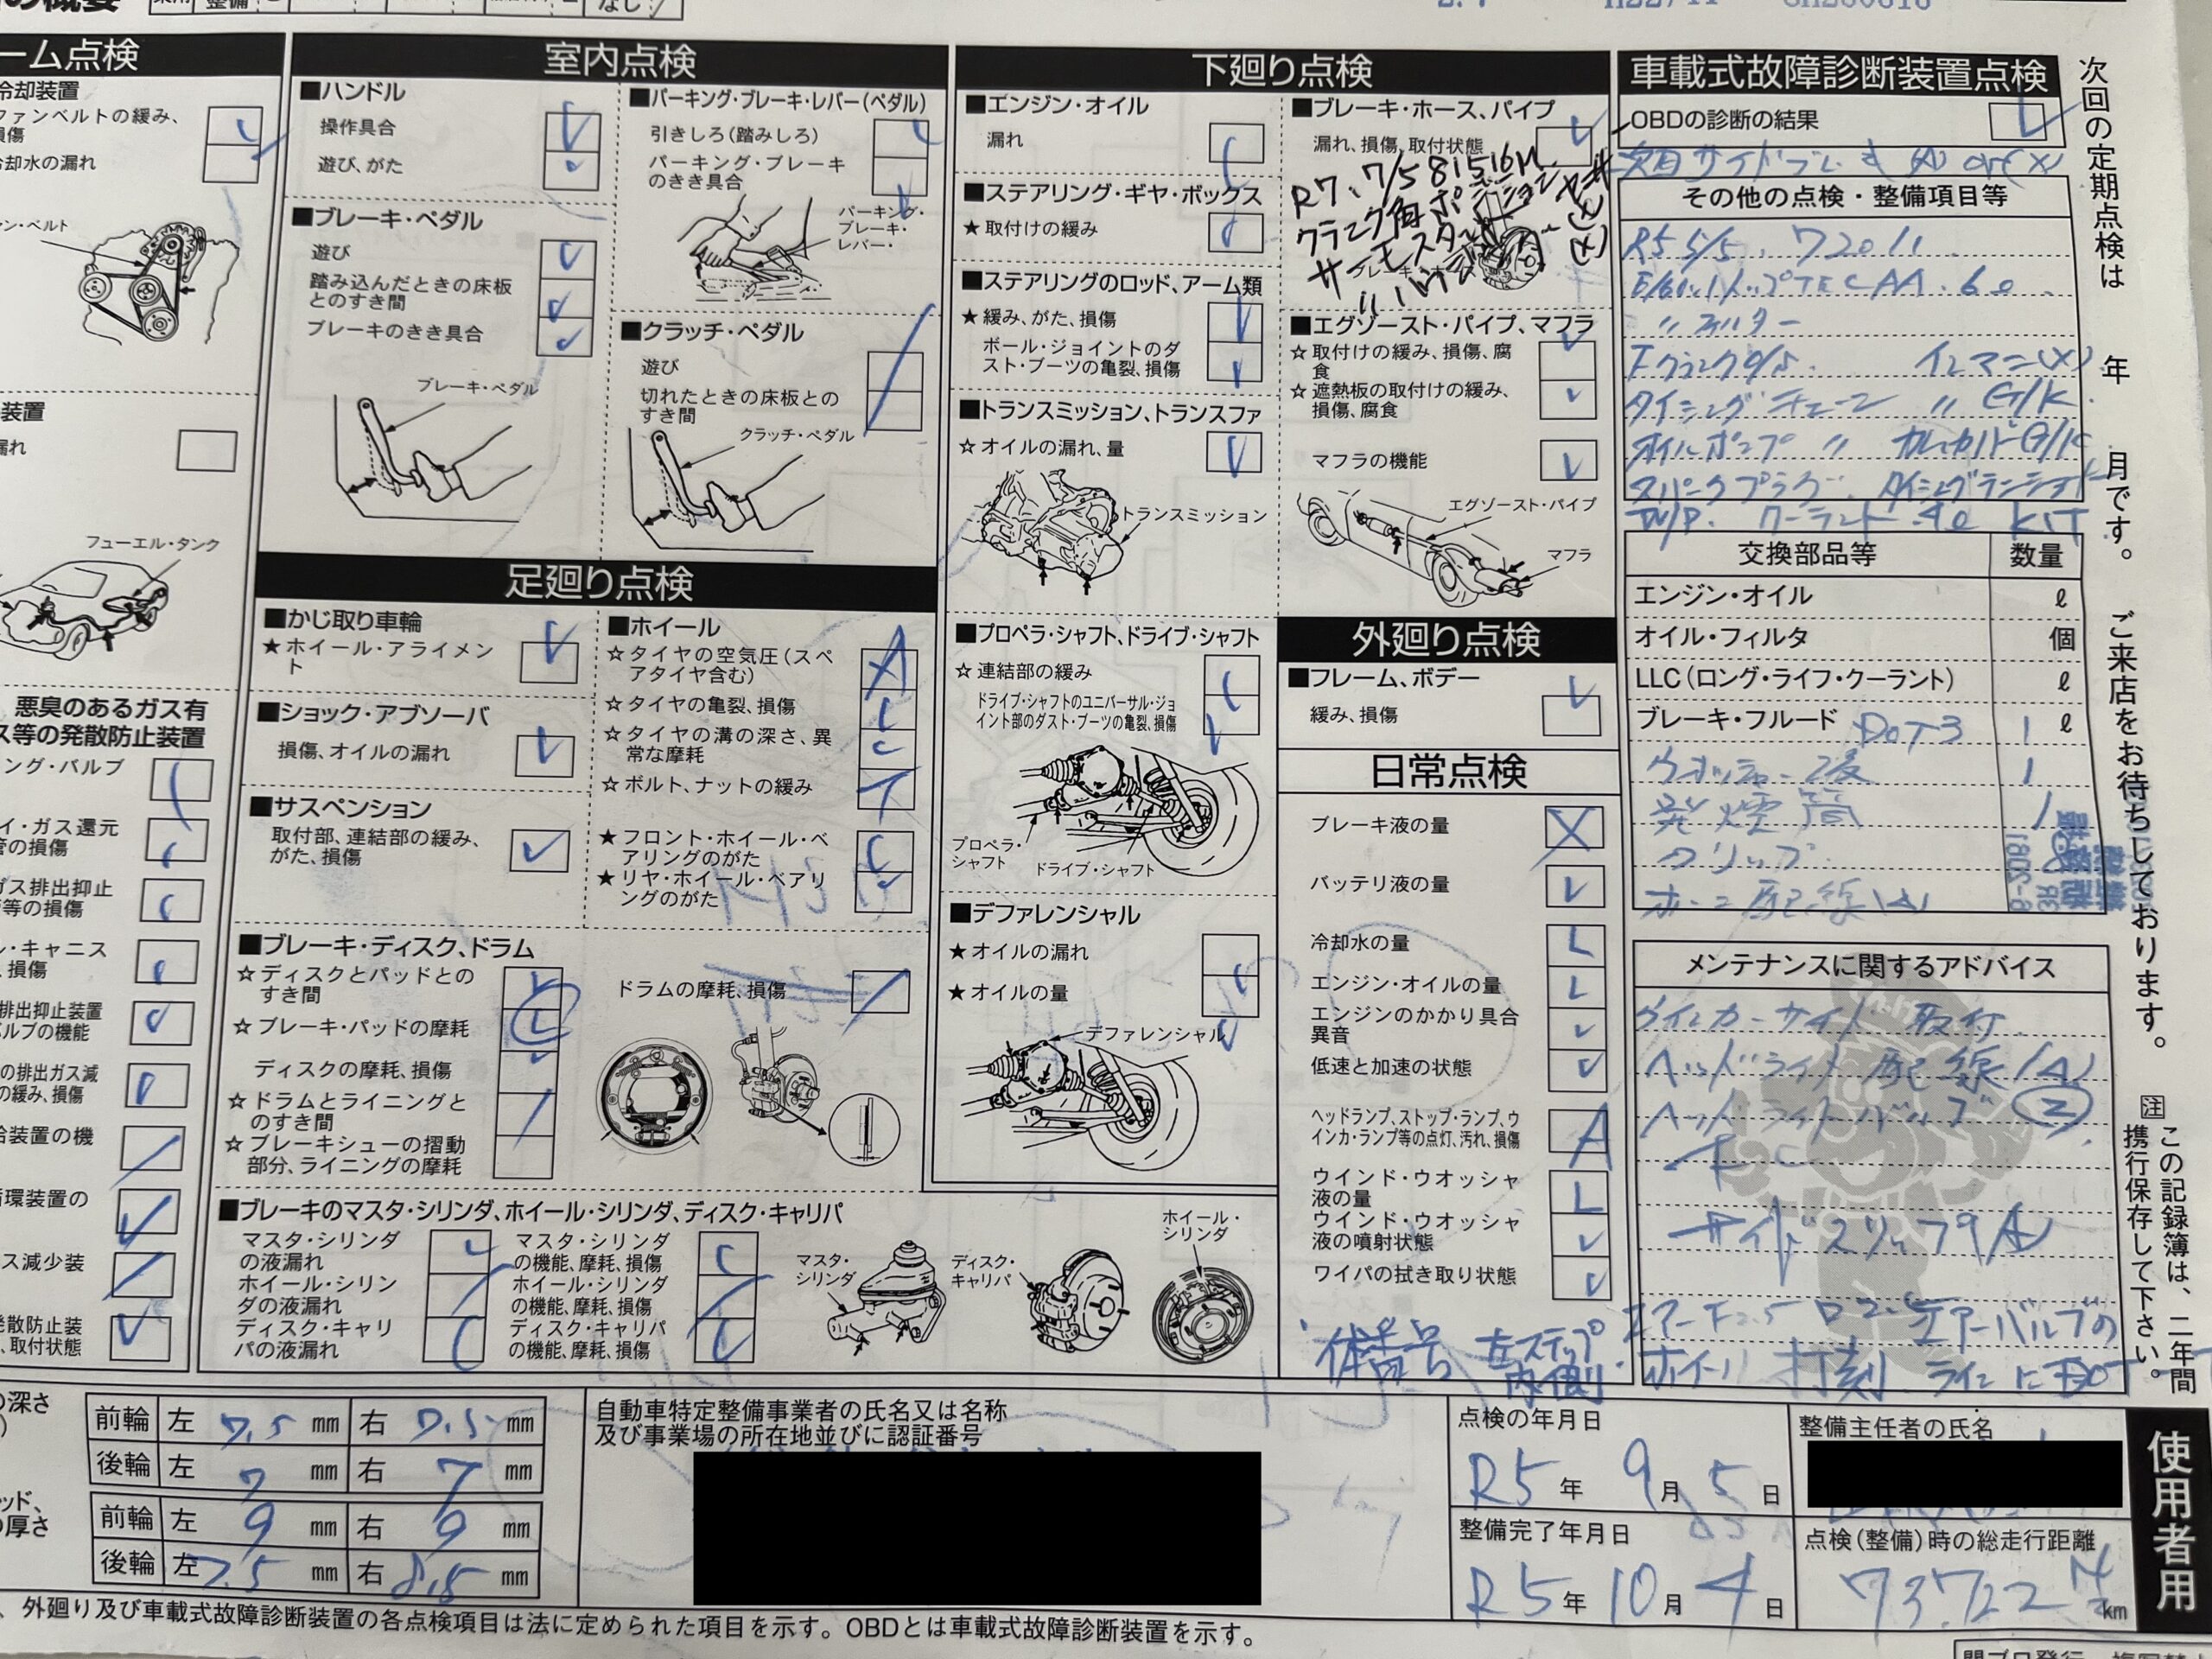 の概要
整備
なし
ーム点検
冷却装置
ファンベルトの緩み、
損傷
冷却水の漏れ
ン・ベルト
装置
漏れ
フューエル・タンク
悪臭のあるガス有
ス等の発散防止装置
ング・バルブ
イ・ガス還元
管の損傷
ガス排出抑止
等の損傷
ル・キャニス
損傷
排出抑止装置
バルブの機能
の排出ガス減
の緩み、損傷
給装置の機
循環装置の
ス減少装
発散防止装
、取付状態
室内点検
■ハンドル
操作具合
遊び、がた
■ブレーキ・ペダル
遊び
踏み込んだときの床板
とのすき間
ブレーキのきき具合
ブレーキ・ペダル
■パーキング・ブレーキ・レバー(ペダル)
引きしろ(踏みしろ)
パーキング・ブレーキ
のきき具合
パーキング・
ブレーキ・
レバー・
■クラッチ・ペダル
遊び
切れたときの床板との
すき間
クラッチ・ペダル
足廻り点検
■かじ取り車輪
★ホイール・アライメン
ト
■ショック・アブソーバ
損傷、オイルの漏れ
■サスペンション
取付部、連結部の緩み、
がた、損傷
■ホイール
☆タイヤの空気圧(スペ
アタイヤ含む)
A
☆タイヤの亀裂、損傷
☆タイヤの溝の深さ、異
常な摩耗
☆ボルト、ナットの緩み
T
★フロント・ホイール・ベ
アリングのがた
★リヤ・ホイール・ベアリ
ングのがた
■ブレーキ・ディスク、ドラム
☆ディスクとパッドとの
すき間
☆ブレーキ・パッドの摩耗
ディスクの摩耗、損傷
☆ドラムとライニングと
のすき間
☆ブレーキシューの摺動
部分、ライニングの摩耗
ドラムの摩耗、損傷
■ブレーキのマスタ・シリンダ、ホイール・シリンダ、ディスク・キャリパ
マスタ・シリンダ
の液漏れ
ホイール・シリン
ダの液漏れ
ディスク・キャリ
パの液漏れ
マスタ・シリンダ
の機能、摩耗、損傷
ホイール・シリンダ
の機能、摩耗、損傷
ディスク・キャリパ
の機能、摩耗、損傷
マスタ・
シリンダ
ディスク・
キャリパ
ホイール・
シリンダ
下廻り点検
■エンジン・オイル
漏れ
■ステアリング・ギヤ・ボックス
★取付けの緩み
■ステアリングのロッド、アーム類
★緩み、がた、損傷
ボール・ジョイントのダ
スト・ブーツの亀裂、損傷
■トランスミッション、トランスファ
☆オイルの漏れ、量
トランスミッション
■プロペラ・シャフト、ドライブ・シャフト
☆連結部の緩み
ドライブ・シャフトのユニバーサル・ジョ
イント部のダスト・ブーツの亀裂、損傷
プロペラ・
シャフト
ドライブ・シャフト
■デファレンシャル
★オイルの漏れ
★オイルの量
デファレンシャル
■ブレーキ・ホース、パイプ
漏れ、損傷、取付状態
R7.7/5 81516M
クランク角ポジションセンサー(X)
サーモスタット(X)
ブレーキ・ホース
■エグゾースト・パイプ、マフラ
☆取付けの緩み、損傷、腐
食
☆遮熱板の取付けの緩み、
損傷、腐食
マフラの機能
エグゾースト・パイプ
マフラ
外廻り点検
■フレーム、ボデー
緩み、損傷
日常点検
ブレーキ液の量
X
バッテリ液の量
冷却水の量
L
エンジン・オイルの量
L
エンジンのかかり具合
異音
低速と加速の状態
ヘッドランプ、ストップ・ランプ、ウ
インカ・ランプ等の点灯、汚れ、損傷
A
ウインド・ウオッシャ
液の量
L
ウインド・ウオッシャ
液の噴射状態
ワイパの拭き取り状態
体番号 左ステップ
内側
車載式故障診断装置点検
OBDの診断の結果
次回サイドブレーキ
その他の点検・整備項目等
R5 5/5. 72011
フィルター
インマニ(X)
タイミングチェーン 〃 G/K
オイルポンプ 〃 カムカバーG/K
スパークプラグ
W/P. クーラント 4ℓ KIT
交換部品等 数量
エンジン・オイル ℓ
オイル・フィルタ 個
LLC(ロング・ライフ・クーラント) ℓ
ブレーキ・フルード DOT3 1 ℓ
ウオッシャー液 1
発煙筒 1
クリップ
ホーン配線(A)
メンテナンスに関するアドバイス
ウインカーサイド 取付
ヘッドライト配線(A)
ヘッドライトバルブ ②
サイドスリップ(A)
エアーバルブの
ホイール 打刻 ラインにDOT
次回の定期点検は 年 月です。 ご来店をお待ちしております。
注 この記録簿は、二年間
携行保存して下さい。
の深さ
前輪 左 7.5 mm 右 7.5 mm
後輪 左 7 mm 右 7 mm
ッド、
の厚さ
前輪 左 9 mm 右 9 mm
後輪 左 7.5 mm 右 8.5 mm
自動車特定整備事業者の氏名又は名称
及び事業場の所在地並びに認証番号
点検の年月日
R5年 9月 5日
整備完了年月日
R5年 10月 4日
整備主任者の氏名
点検(整備)時の総走行距離
73,722 km
使用者用
、外廻り及び車載式故障診断装置の各点検項目は法に定められた項目を示す。OBDとは車載式故障診断装置を示す。